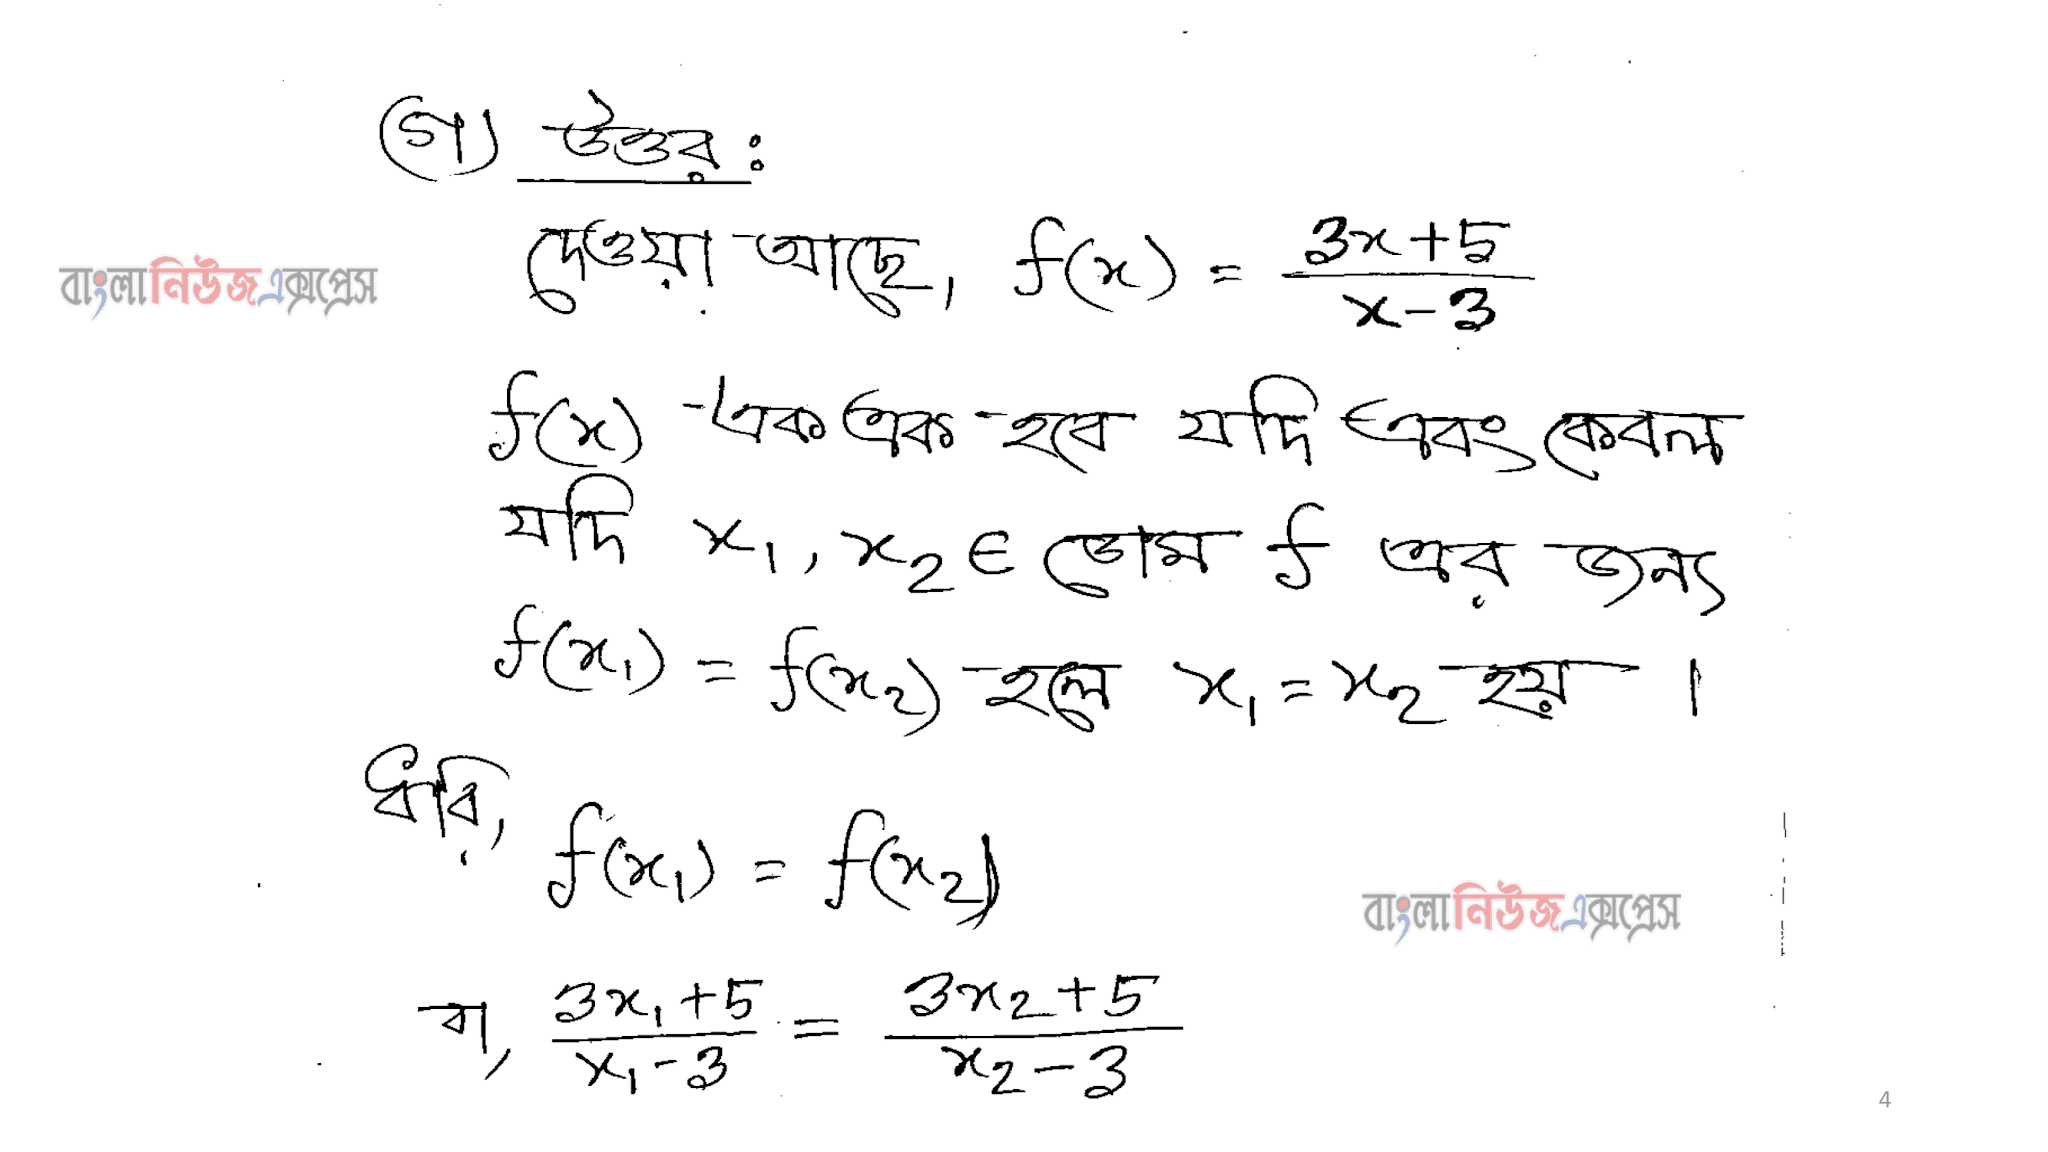 (গ) উত্তর :
দেওয়া আছে, f(x) = (3x+5)/(x-3)
বাংলা নিউজ এক্সপ্রেস
f(x) এক এক হবে যদি এবং কেবল
যদি x₁, x₂ ∈ ডোম f এর জন্য
f(x₁) = f(x₂) হলে x₁ = x₂ হয় ।
ধরি,
f(x₁) = f(x₂)
বাংলা নিউজ এক্সপ্রেস
বা, (3x₁+5)/(x₁-3) = (3x₂+5)/(x₂-3)
4